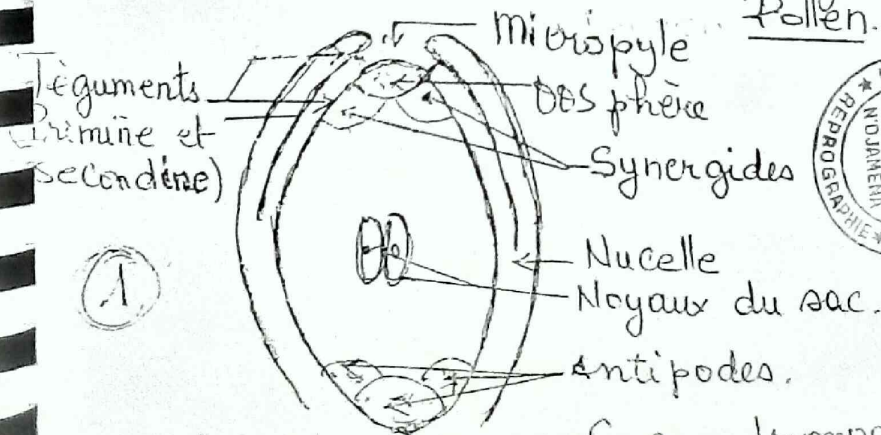 Pollen.
Micropyle
Téguments
(Primine et
secondine)
oosphère
Synergides
1
Nucelle
Noyaux du sac.
Antipodes.
N'DJAMENA
REPROGRAPHIE